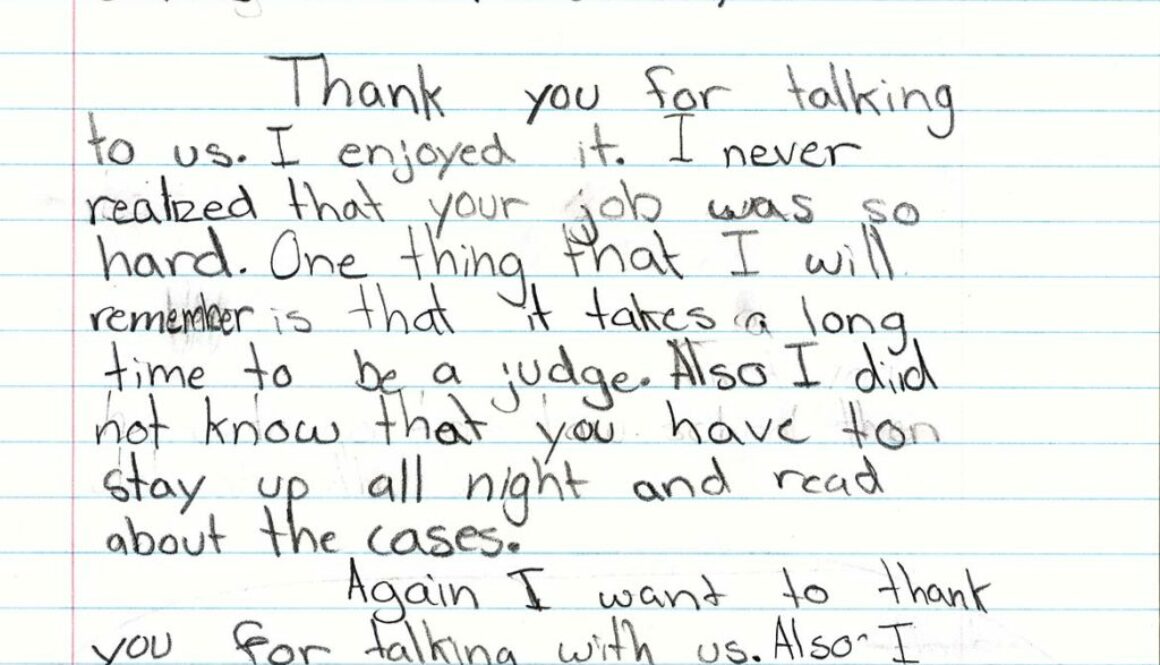 Thank you for talking
to us. I enjoyed it. I never
realized that your job was so
hard. One thing that I will
remember is that it takes a long
time to be a judge. Also I diid
not know that you have ton
stay up all night and read
about the cases.
Again I want to thank
you for talking with us. Also I